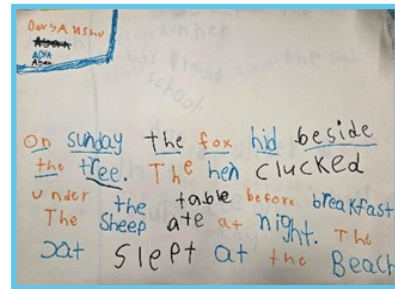 DevyAnshu
Ayan
ADYA
Ayan
On sunday the fox hid beside
the tree. The hen clucked
under the table before breakfast.
The Sheep ate at night. The
cat slept at the Beach